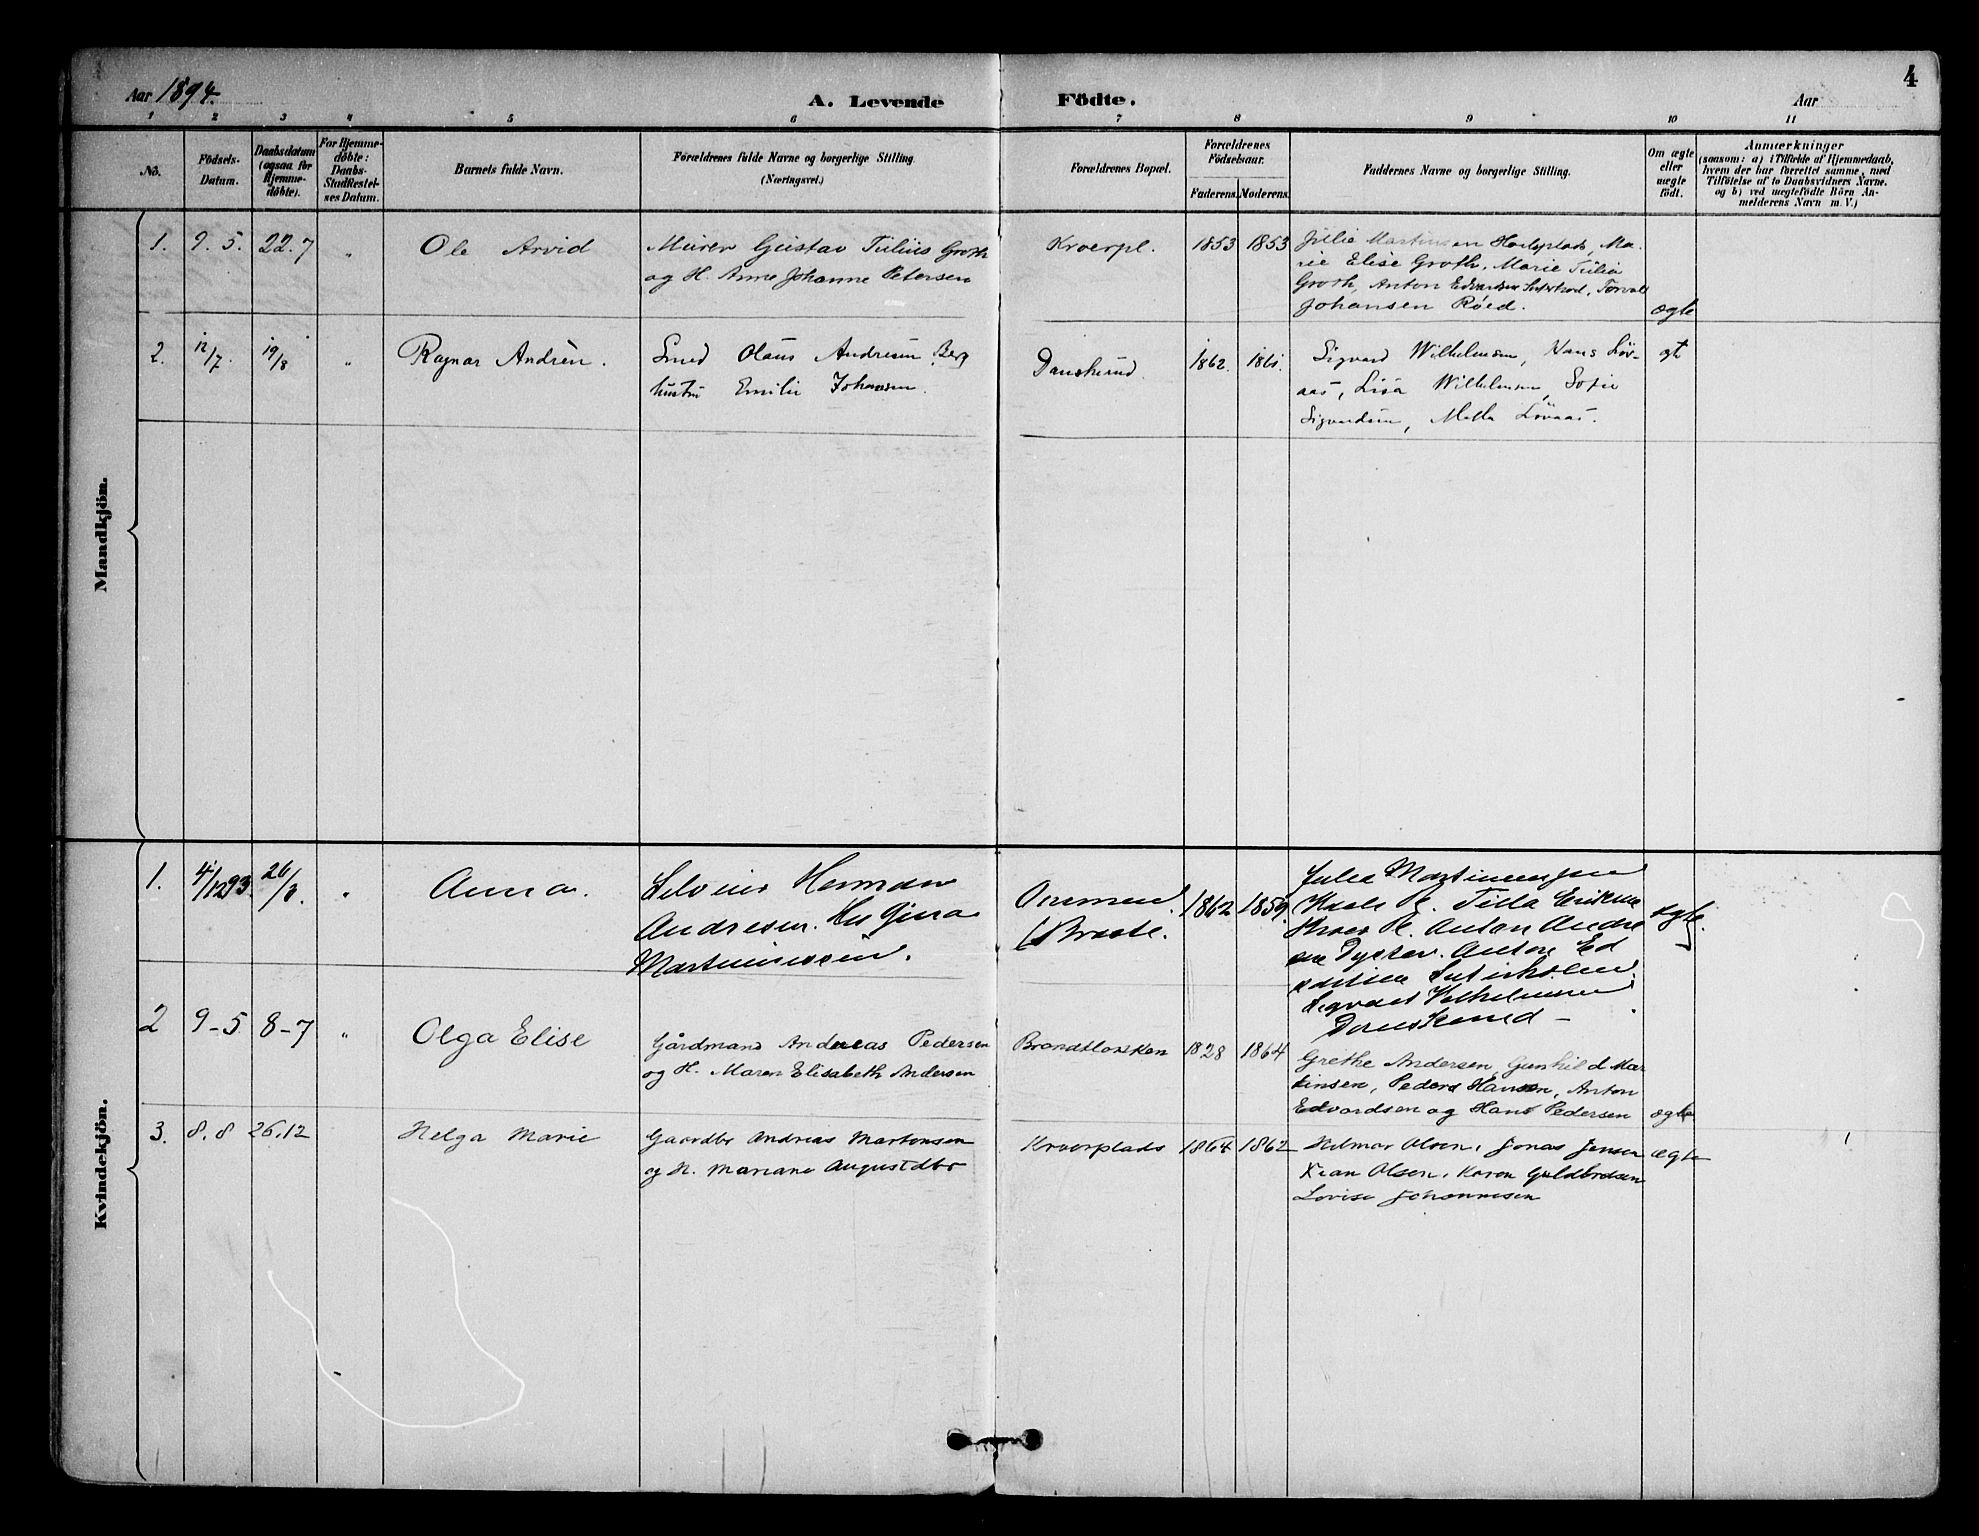 Aar 1894.
A. Levende Födte.
Aar
4
1 2 3 4 5 6 7 8 9 10 11
No.
Födsels-
Datum.
Daabsdatum
(ogsaa for
Hjemme-
döbte).
For Hjemme-
döbte:
Daabs-
Stadfæstel-
ses Datum.
Barnets fulde Navn.
Forældrenes fulde Navne og borgerlige Stilling.
(Næringsvei.)
Forældrenes Bopæl.
Forældrenes
Födselsaar.
Faderens. Moderens.
Faddernes Navne og borgerlige Stilling.
Om ægte
eller
uægte
födt.
Anmærkninger
(saasom: a) i Tilfælde af Hjemmedaab,
hvem der har forrettet samme, med
Tilföielse af to Daabsvidners Navne,
og b) ved uægtefödte Börn An-
melderens Navn m. V.)
Mandkjön.
1. 9. 5. 22. 7 " Ole Arvid
Murer Gustav Julius Groth
og H. Anne Johanne Petersen
Kroerpl. 1853 1853
Julie Martinsen Ma-
rie Elise Groth, Marie Julia
Groth, Anton Edvardsen Torvald
Johansen Røed. ægte
2. 12/7. 19/8 " Ragnar Andrèn.
Smed Olaus Andresen Berg
hustru Emilie Johansen.
Danskerud. 1862. 1861.
Sigvard Wilhelmsen, Hans Löv-
aas, Lisa Wilhelmsen, Sofie
Sigvardsen, Lövaas.
ægt
Kvindekjön.
1. 4/12 93. 26/3. " Anna.
Herman
Andresen. Gina
Martinussen.
1862 1859.
Martinussen
Anton Andre
Anton Ed
Wilhelmsen
Danskerud —
ægte.
2 9-5 8-7 " Olga Elise
Gårdmand Andreas Pedersen
og H. Maren Elisabeth Andersen
1828 1864
Grethe Andersen, Gunhild Mar
tinsen, Peder Hansen, Anton
Edvardsen og Hans Pedersen ægte
3. 8. 8 26. 12 Helga Marie
Gaardbr Andreas Martensen
og H. Mariane Augustdbr
Kroerplads 1864 1862
Hilmar Olsen, Jonas Jensen
Olsen, Karen Guldbrdsen
Lovise Johannesen
ægte